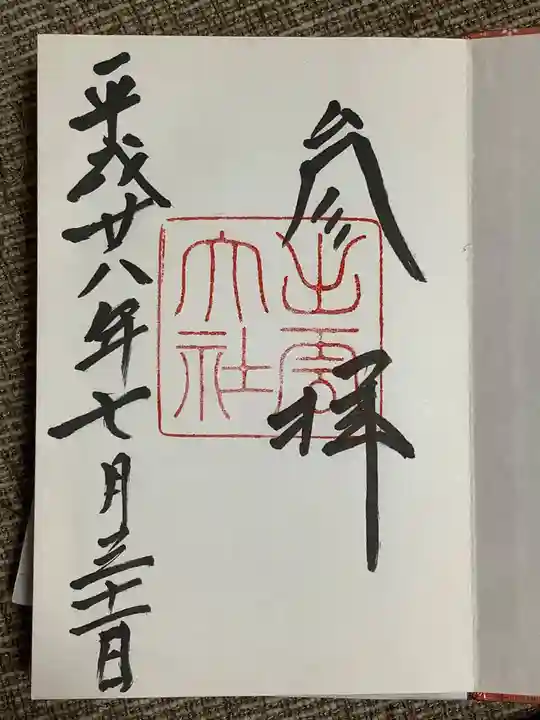 参拝
出雲
大社
平成廿八年七月三十一日